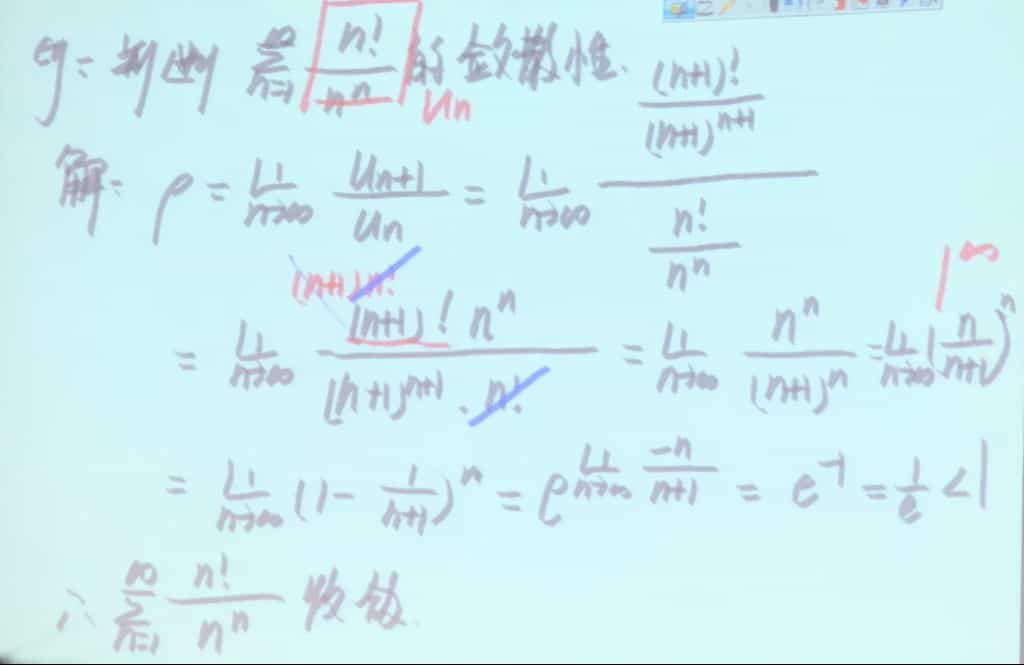 例: 判断 \sum_{n=1}^{\infty} \frac{n!}{n^n} 的敛散性. u_n
解: \rho = \lim_{n\to\infty} \frac{u_{n+1}}{u_n} = \lim_{n\to\infty} \frac{\frac{(n+1)!}{(n+1)^{n+1}}}{\frac{n!}{n^n}}
(n+1)n! 1^{\infty}
= \lim_{n\to\infty} \frac{(n+1)! n^n}{(n+1)^{n+1} \cdot n!} = \lim_{n\to\infty} \frac{n^n}{(n+1)^n} = \lim_{n\to\infty} (\frac{n}{n+1})^n
= \lim_{n\to\infty} (1 - \frac{1}{n+1})^n = e^{\lim_{n\to\infty} \frac{-n}{n+1}} = e^{-1} = \frac{1}{e} < 1
∴ \sum_{n=1}^{\infty} \frac{n!}{n^n} 收敛.